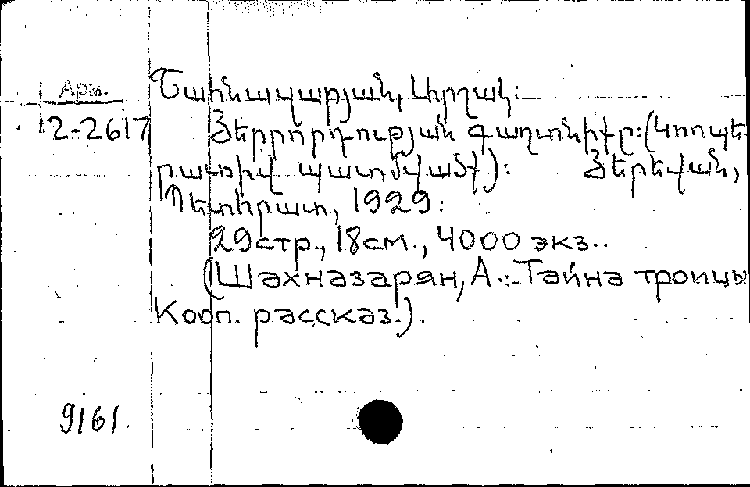 Арм.
12-2617
Շահնազարյան, Արշակ:
Յերրորդության գաղտնիքը: (Կոոպե-
րատիվ պատմվածք): Յերեվան,
Պետհրատ, 1929:
29стр., 18см., 4000 экз..
(Шахназарян, А.: Тайна троицы
Кооп. рассказ.).
9161.